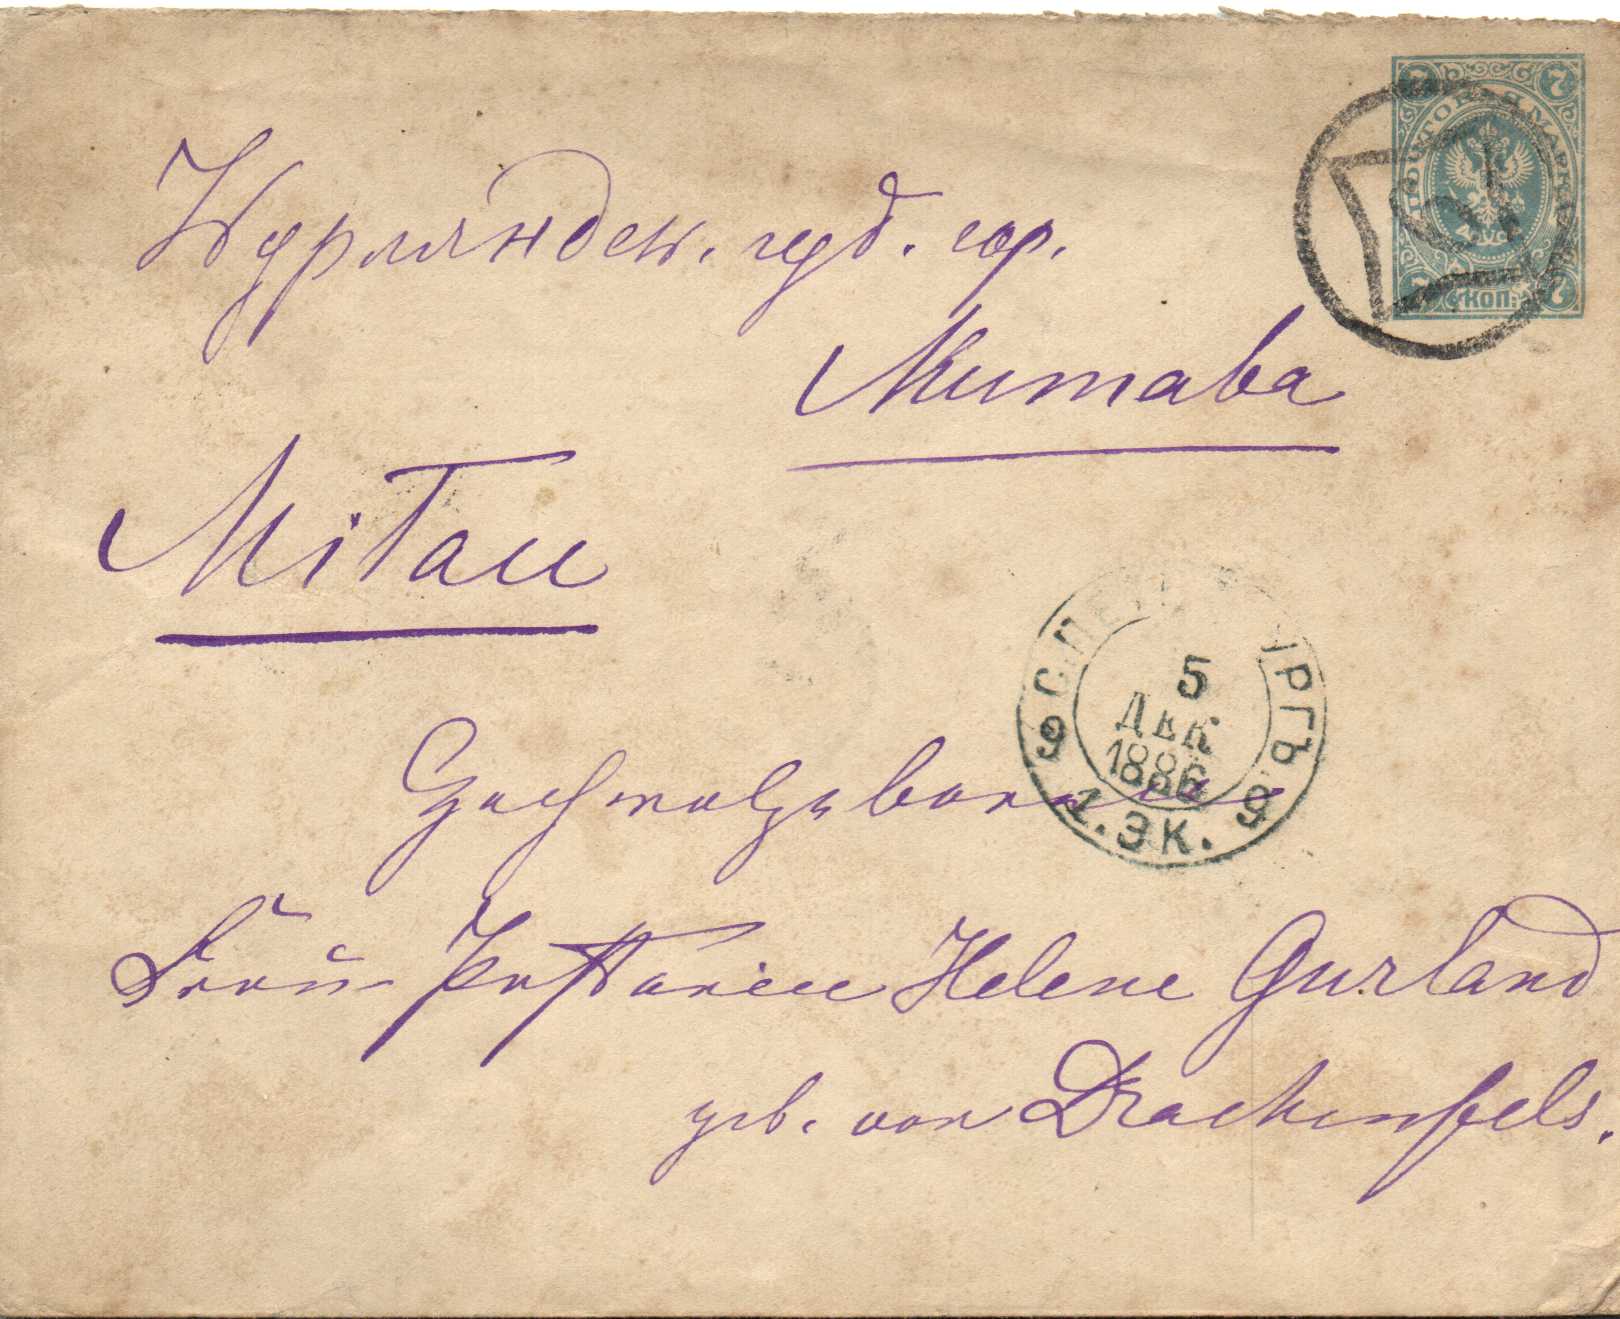 7 7
ПОЧТОВАЯ МАРКА
7 КОП. 7
Курляндск. губ. гор.
Митава
Mitau
С.ПЕТЕРБУРГЪ
5
ДЕК
1886
9 1.ЭК. 9
Hochwolgeborene
Frau Pastorin Helene Gurland
geb. von Drachenfels.